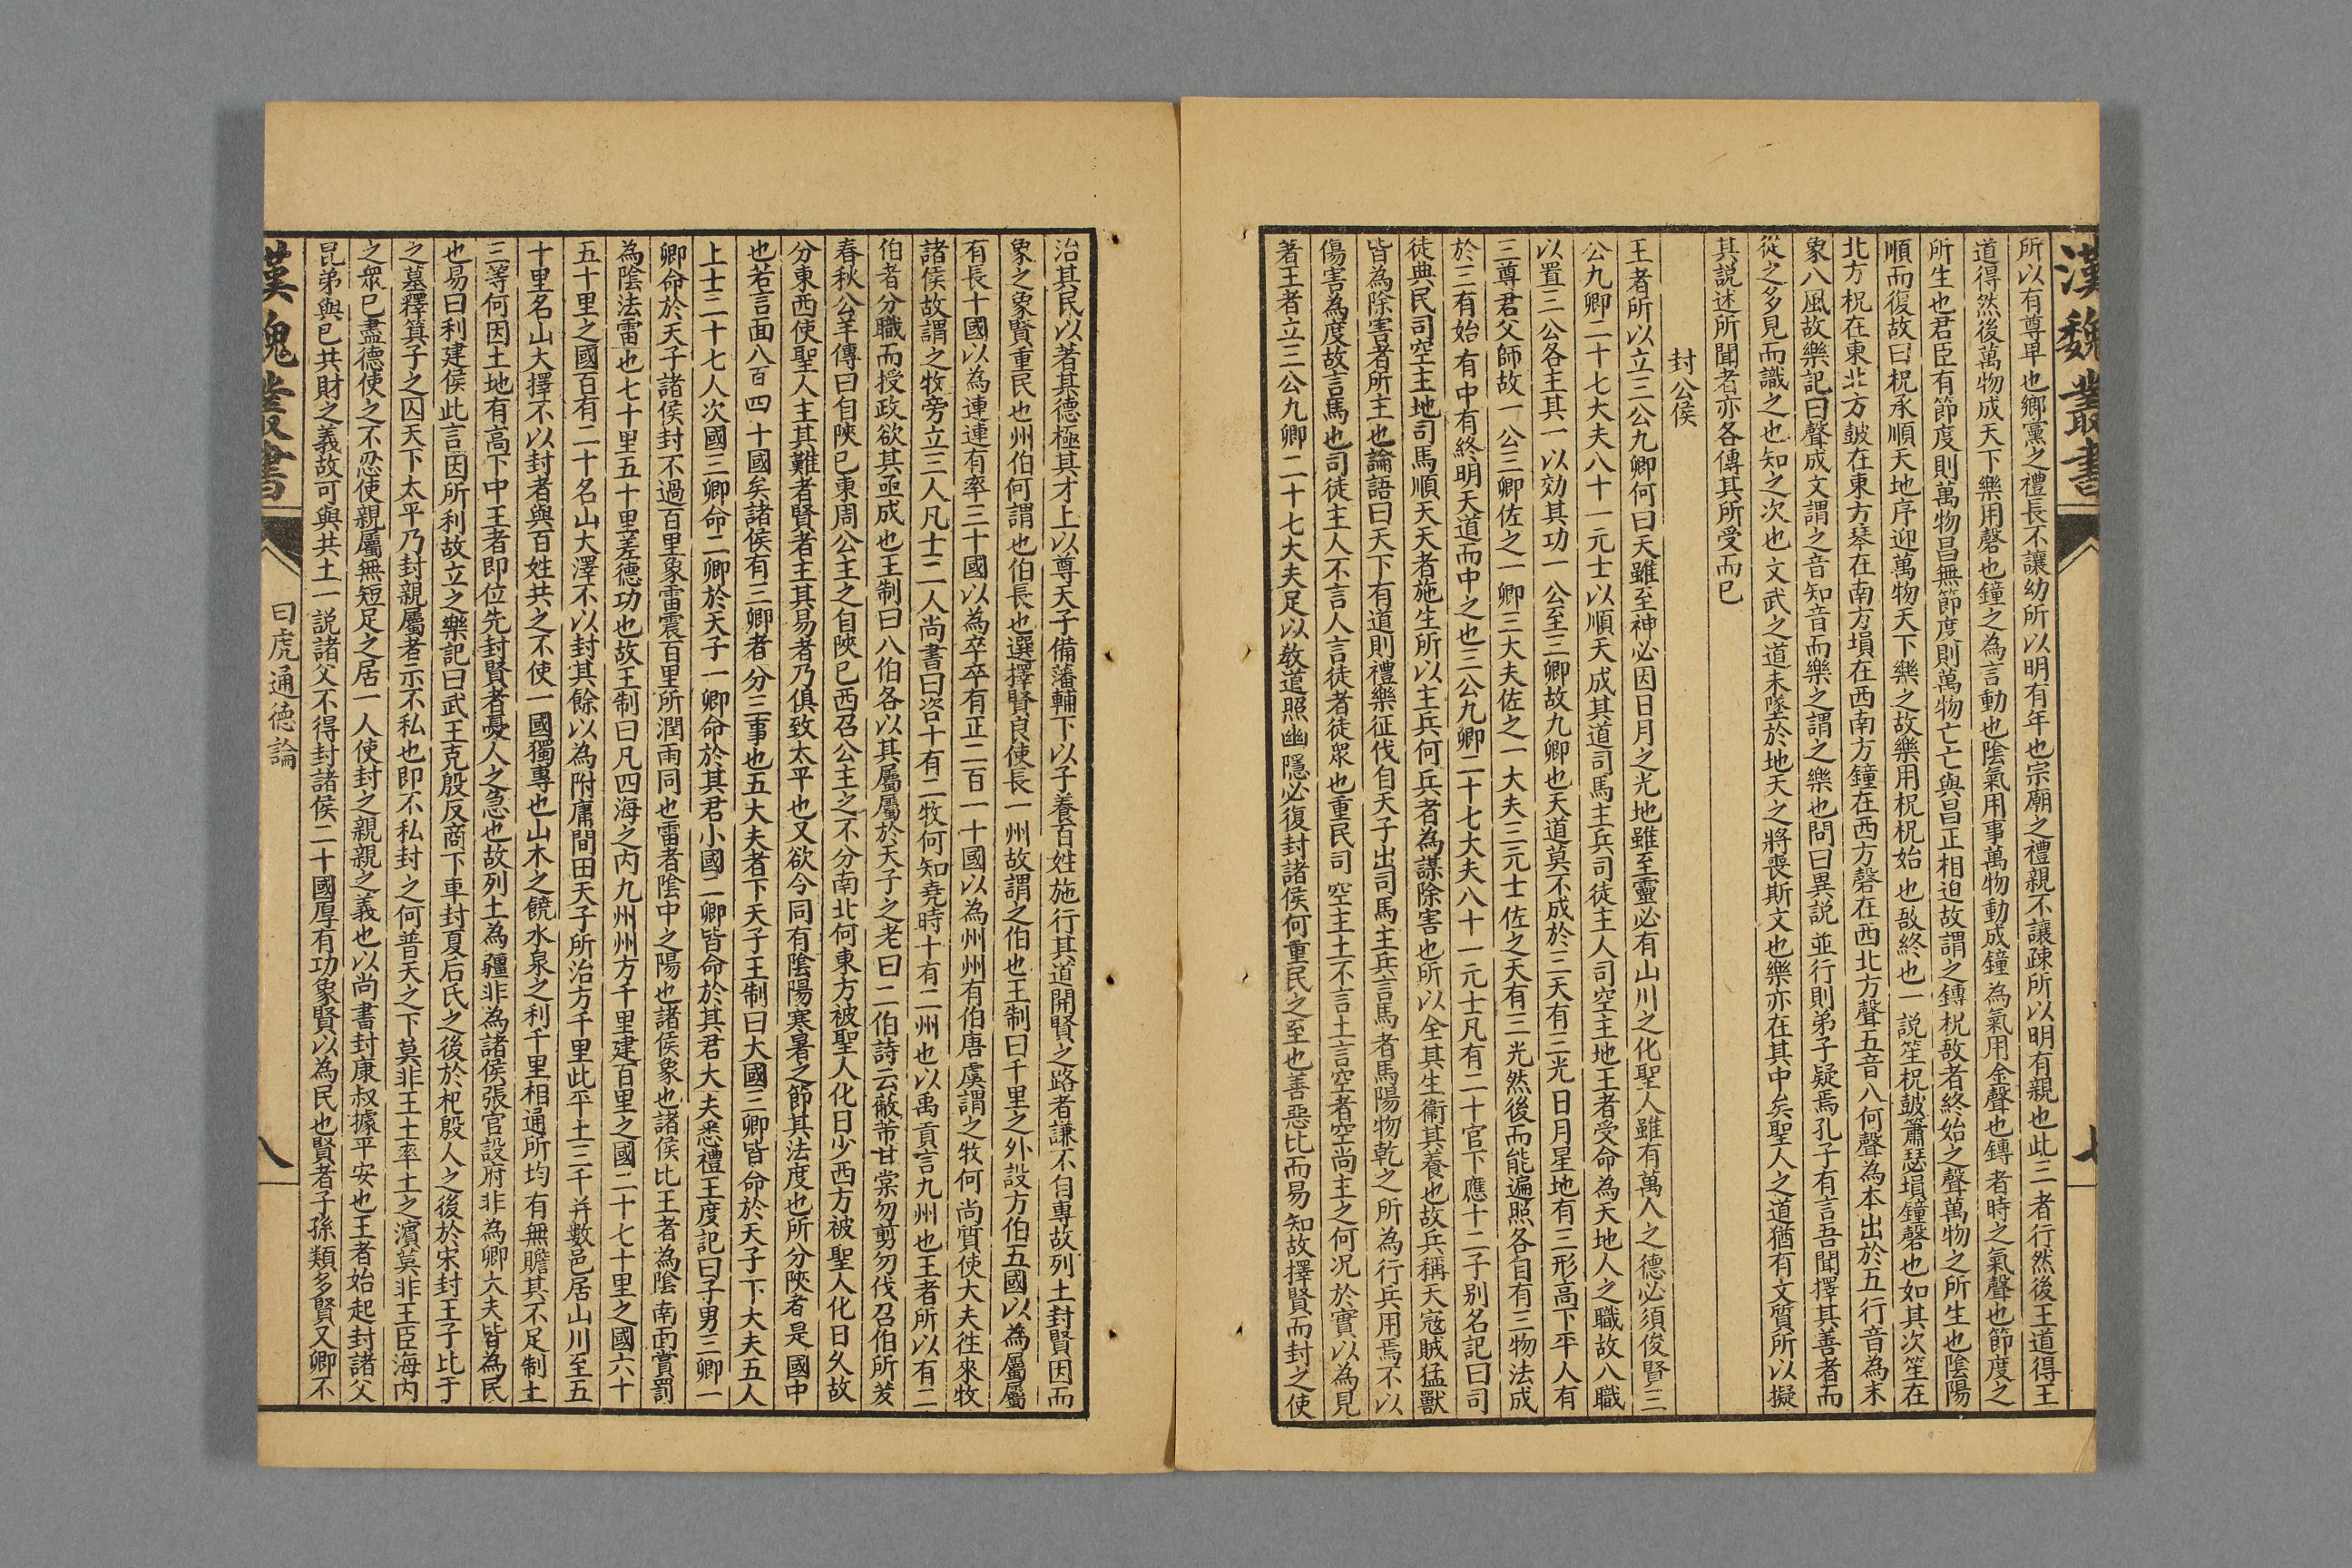 漢魏叢書
七
所以有尊卑也鄉黨之禮長不讓幼所以明有年也宗廟之禮親不讓疎所以明有親也此三者行然後王道得王
道得然後萬物成天下樂用磬也鐘之為言動也陰氣用事萬物動成鐘為氣用金聲也鎛者時之氣聲也節度之
所生也君臣有節度則萬物昌無節度則萬物亡亡與昌正相迫故謂之鎛柷敔者終始之聲萬物之所生也陰陽
順而復故曰柷承順天地序迎萬物天下樂之故樂用柷柷始也敔終也一説笙柷鼓簫瑟塤鐘磬也如其次笙在
北方柷在東北方鼓在東方琴在南方塤在西南方鐘在西方磬在西北方聲五音八何聲為本出於五行音為末
象八風故樂記曰聲成文謂之音知音而樂之謂之樂也問曰異説並行則弟子疑焉孔子有言吾聞擇其善者而
從之多見而識之也知之次也文武之道未墜於地天之將喪斯文也樂亦在其中矣聖人之道猶有文質所以擬
其説述所聞者亦各傳其所受而已
封公侯
王者所以立三公九卿何曰天雖至神必因日月之光地雖至靈必有山川之化聖人雖有萬人之德必須俊賢三
公九卿二十七大夫八十一元士以順天成其道司馬主兵司徒主人司空主地王者受命為天地人之職故八職
以置三公各主其一以効其功一公至三卿故九卿也天道莫不成於三天有三光日月星地有三形高下平人有
三尊君父師故一公三卿佐之一卿三大夫佐之一大夫三元士佐之天有三光然後而能遍照各自有三物法成
於三有始有中有終明天道而中之也三公九卿二十七大夫八十一元士凡有二十官下應十二子别名記曰司
徒典民司空主地司馬順天天者施生所以主兵何兵者為謀除害也所以全其生衞其養也故兵稱天寇賊猛獸
皆為除害者所主也論語曰天下有道則禮樂征伐自天子出司馬主兵言馬者馬陽物乾之所為行兵用焉不以
傷害為度故言馬也司徒主人不言人言徒者徒眾也重民司空主土不言土言空者空尚主之何况於實以為見
著王者立三公九卿二十七大夫足以教道照幽隱必復封諸侯何重民之至也善惡比而易知故擇賢而封之使
治其民以著其德極其才上以尊天子備藩輔下以子養百姓施行其道開賢之路者謙不自專故列土封賢因而
象之象賢重民也州伯何謂也伯長也選擇賢良使長一州故謂之伯也王制曰千里之外設方伯五國以為屬屬
有長十國以為連連有率三十國以為卒卒有正二百一十國以為州州有伯唐虞謂之牧何尚質使大夫往來牧
諸侯故謂之牧旁立三人凡士二人尚書曰咨十有二牧何知堯時十有二州也以禹貢言九州也王者所以有二
伯者分職而授政欲其亟成也王制曰八伯各以其屬屬於天子之老曰二伯詩云蔽芾甘棠勿剪勿伐召伯所茇
春秋公羊傳曰自陜已東周公主之自陜已西召公主之不分南北何東方被聖人化日少西方被聖人化日久故
分東西使聖人主其難者賢者主其易者乃俱致太平也又欲今同有陰陽寒暑之節其法度也所分陜者是國中
也若言面八百四十國矣諸侯有三卿者分三事也五大夫者下天子王制曰大國三卿皆命於天子下大夫五人
上士二十七人次國三卿命二卿於天子一卿命於其君小國二卿皆命於其君大夫悉禮王度記曰子男三卿一
卿命於天子諸侯封不過百里象雷震百里所潤雨同也雷者陰中之陽也諸侯象也諸侯比王者為陰南面賞罰
為陰法雷也七十里五十里差德功也故王制曰凡四海之内九州州方千里建百里之國二十七十里之國六十
五十里之國百有二十名山大澤不以封其餘以為附庸間田天子所治方千里此平土三千并數邑居山川至五
十里名山大擇不以封者與百姓共之不使一國獨專也山木之饒水泉之利千里相通所均有無贍其不足制土
三等何因土地有高下中王者即位先封賢者憂人之急也故列土為疆非為諸侯張官設府非為卿大夫皆為民
也易曰利建侯此言因所利故立之樂記曰武王克殷反商下車封夏后氏之後於杞殷人之後於宋封王子比干
之墓釋箕子之囚天下太平乃封親屬者示不私也即不私封之何普天之下莫非王土率土之濱莫非王臣海内
之眾已盡德使之不忍使親屬無短足之居一人使封之親親之義也以尚書封康叔據平安也王者始起封諸父
昆弟與己共財之義故可與共土一説諸父不得封諸侯二十國厚有功象賢以為民也賢者子孫類多賢又卿不
漢魏叢書
白虎通德論
八